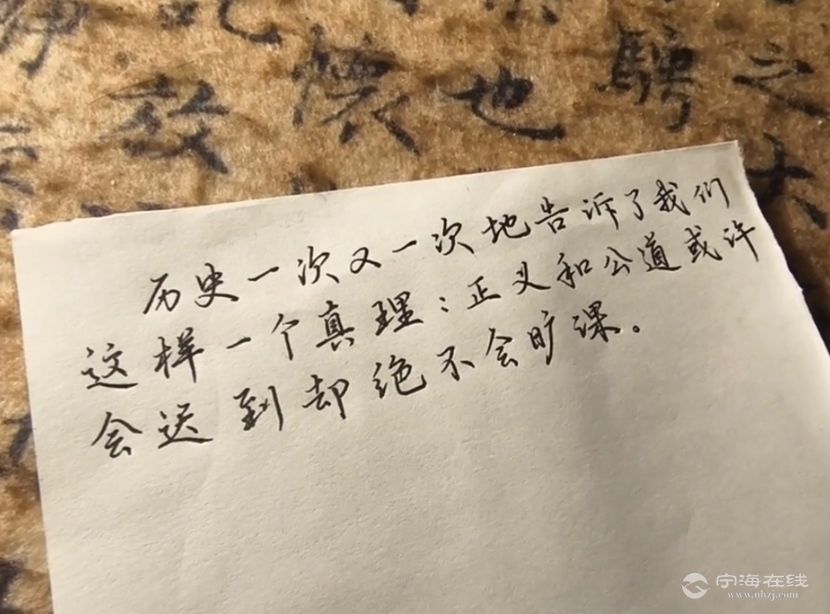 放懷也騁之
历史一次又一次地告诉了我们
这样一个真理：正义和公道或许
会迟到却绝不会旷课。
宁海在线
www.nhzj.com